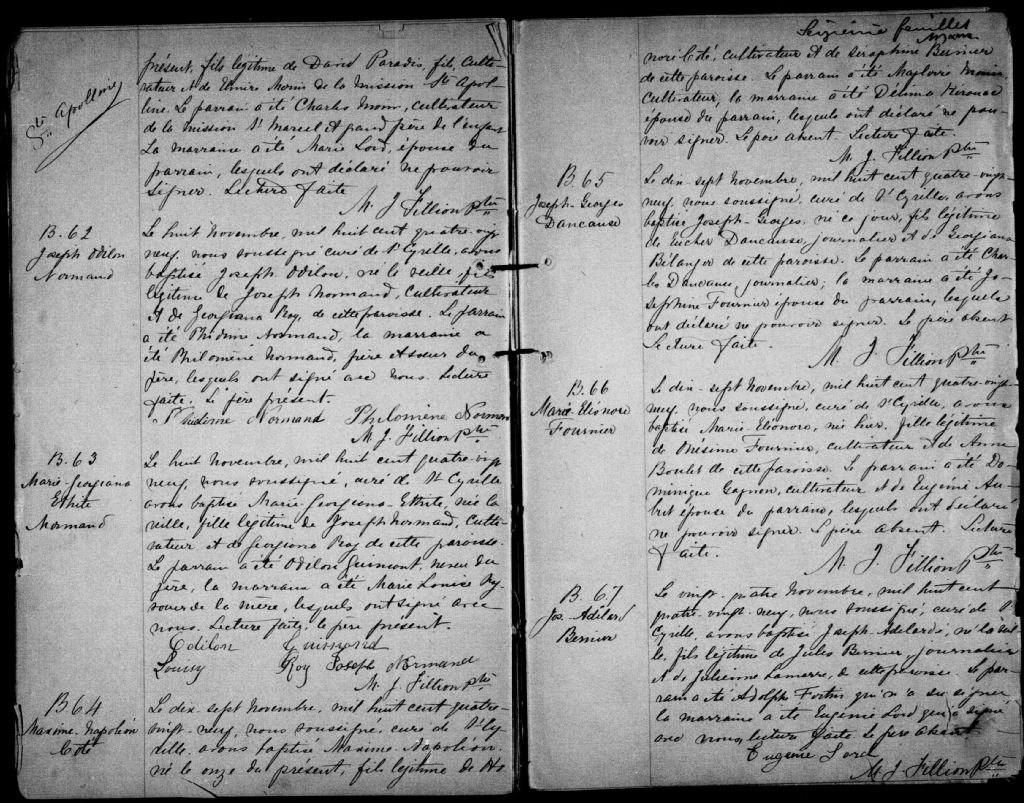 Ste Apolloine
présent, fils légitime de David Paradis, fils, culti-
vateur & de Elmire Morin de la mission Ste Apol-
line. Le parrain a été Charles Morin, cultivateur
de la mission St Marcel et grand père de l'enfant
La marraine a été Marie Lord, épouse du
parrain, lesquels ont déclaré ne pouvoir
signer. Lecture faite
M. J. Fillion Ptre
B. 62
Joseph Odilon
Normand
Le huit Novembre, mil huit cent quatre-vingt
neuf, nous soussigné curé de St Cyrille, avons
baptisé Joseph Odilon, né la veille, fils
légitime de Joseph Normand, cultivateur
& de Georgiana Roy, de cette paroisse. Le parrain
a été Normand, la marraine a
été Philomène Normand, frère et soeur du
père, lesquels ont signé avec nous. Lecture
faite. Le père présent.
Normand Philomène Normand
M. J. Fillion Ptre
B. 63
Marie-Georgiana
Normand
Le huit Novembre, mil huit cent quatre-vingt
neuf, nous soussigné, curé de St Cyrille
avons baptisé Marie Georgiana née la
veille, fille légitime de Joseph Normand, culti-
vateur et de Georgiana Roy de cette paroisse.
Le parrain a été Odilon Guimont, neveu du
père, la marraine a été Marie Louise Roy
soeur de la mère, lesquels ont signé avec
nous. Lecture faite, le père présent.
Odilon
Roy Joseph Normand
M. J. Fillion Ptre
B 64
Maxime-Napoléon
Coté
Le dix-sept Novembre, mil huit cent quatre-
vingt-neuf, nous soussigné, curé de St Cy-
rille, avons baptisé Maxime-Napoléon,
né le onze du présent, fils légitime de Ho
Seizième feuillet
noré Coté, cultivateur & de Seraphine Bernier
de cette paroisse. Le parrain a été Magloire Morin
cultivateur, la marraine a été Délima
épouse du parrain, lesquels ont déclaré ne pou-
voir signer. Le père absent. Lecture faite.
M. J. Fillion Ptre
B. 65
Joseph-Georges
Dancause
Le dix-sept Novembre, mil huit cent quatre-vingt-
neuf, nous soussigné, curé de St Cyrille, avons
baptisé Joseph-Georges, né ce jour, fils légitime
de Eucher Dancause, journalier & de Georgiana
Bélanger de cette paroisse. Le parrain a été Char-
les Dancause, journalier; la marraine a été Jo-
sephine Fournier épouse du parrain, lesquels
ont déclaré ne pouvoir signer. Le père absent
Lecture faite.
M. J. Fillion Ptre
B. 66
Marie-Eléonore
Fournier
Le dix-sept Novembre, mil huit cent quatre-vingt-
neuf, nous soussigné, curé de St Cyrille, avons
baptisé Marie-Eléonore, née hier, fille légitime
de Onésime Fournier, cultivateur & de Anne
Boulet de cette paroisse. Le parrain a été Do-
minique Gagnon, cultivateur & de Eugénie Au-
but épouse du parrain, lesquels ont déclaré
ne pouvoir signer. Le père absent. Lecture
faite.
M. J. Fillion Ptre
B. 67
Jos. Adélard
Bernier
Le vingt-quatre Novembre, mil huit cent
quatre-vingt-neuf, nous soussigné, curé de St
Cyrille, avons baptisé Joseph-Adelard, né la veil-
le, fils légitime de Jules Bernier, journalier
& de Julienne Lamarre, de cette paroisse. Le par-
rain a été Adolphe Fortin qui n'a su signer
la marraine a été Eugénie Lord qui a signé
avec nous, lecture faite le père absent.
Eugénie Lord
M. J. Fillion Ptre